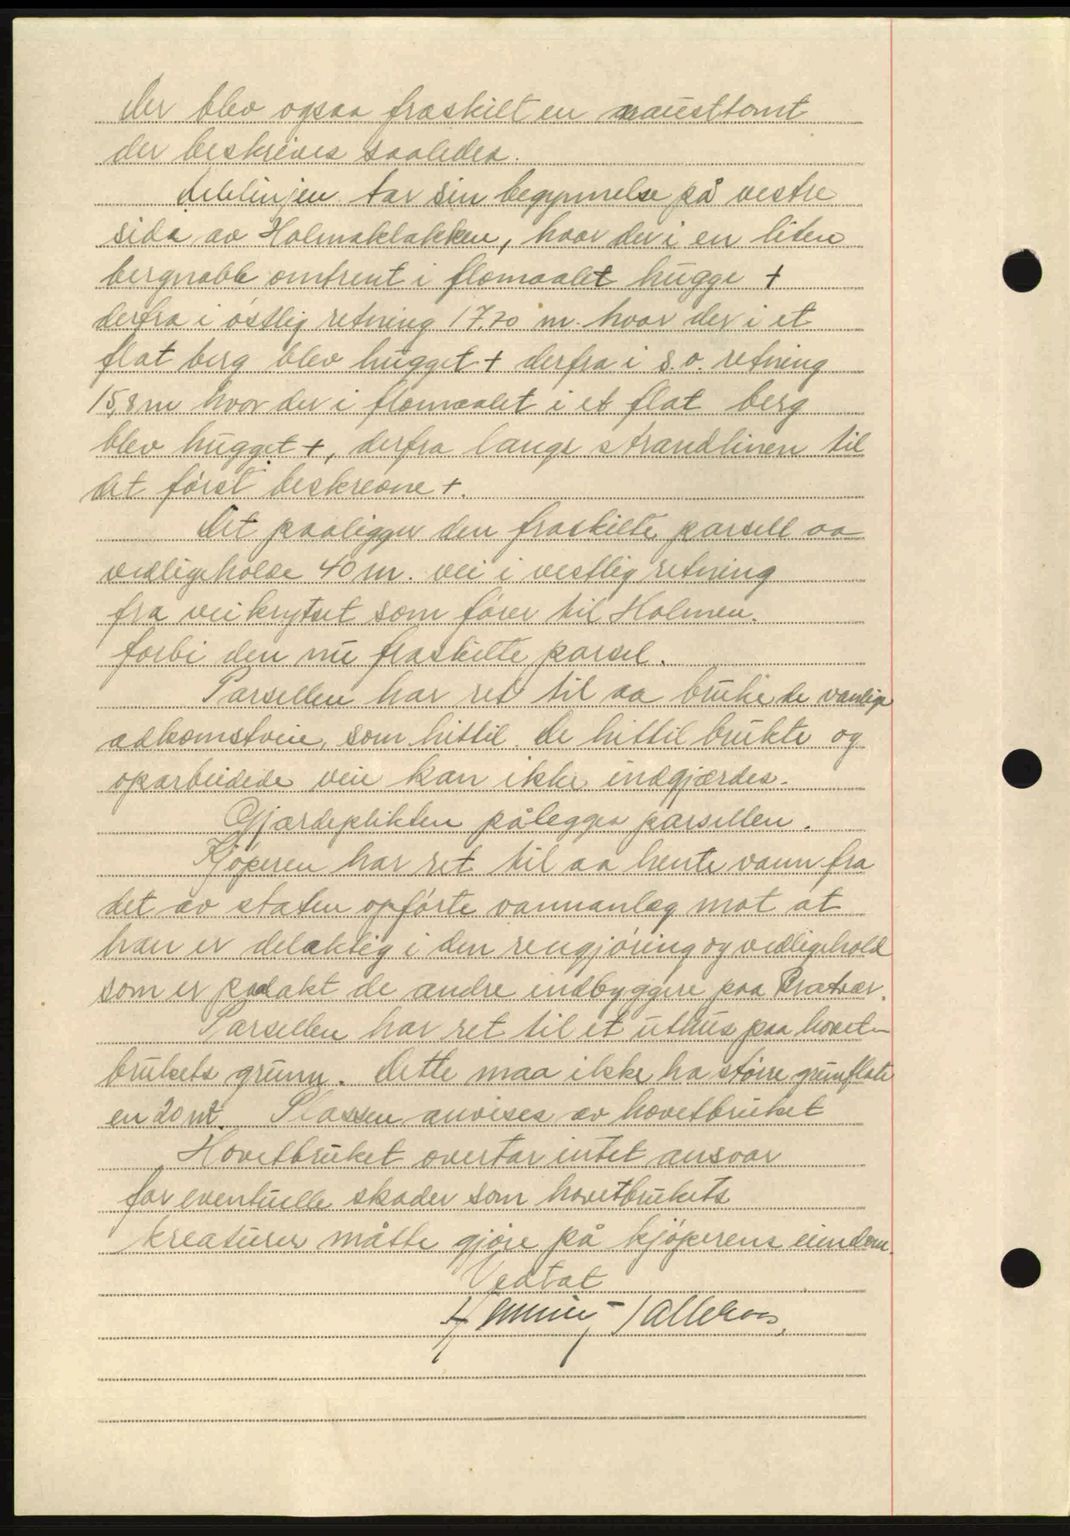 der blev ogsaa fraskilt en nausttomt
der beskrives saaledes.
Delelinjen tar sin begynnelse på vestre
side av Holmaklakken, hvor der i en liten
bergnabb omtrent i flomaalet hugge +
derfra i østlig retning 17,70 m. hvor der i et
flat berg blev hugget + derfra i s.o. retning
15,8 m hvor der i flomaalet i et flat berg
blev hugget +, derfra langs strandlinen til
det først beskrevne +.
Det paaligger den fraskilte parsell aa
vedligeholde 40 m. vei i vestlig retning
fra veikrytset som fører til Holmen.
forbi den nu fraskilte parsel.
Parsellen har ret til aa bruke de vanlige
adkomstveie, som hittil. de hittil brukte og
oparbeidede veie kan ikke indgjærdes.
Gjærdeplikten pålegges parsellen.
Kjøperen har ret til aa hente vann fra
det av staten opførte vannanlæg mot at
han er delaktig i den rengjøring og vedligehold
som er paalakt de andre indbyggere paa
Parsellen har ret til et uthus paa hovet-
brukets grunn. Dette maa ikke ha større grunflate
en 20 m². Plassen anvises av hovetbruket
Hovetbruket overtar intet ansvar
for eventuelle skader som hovetbrukets
kreaturer måtte gjøre på kjøperens eiendom.
Vedtat